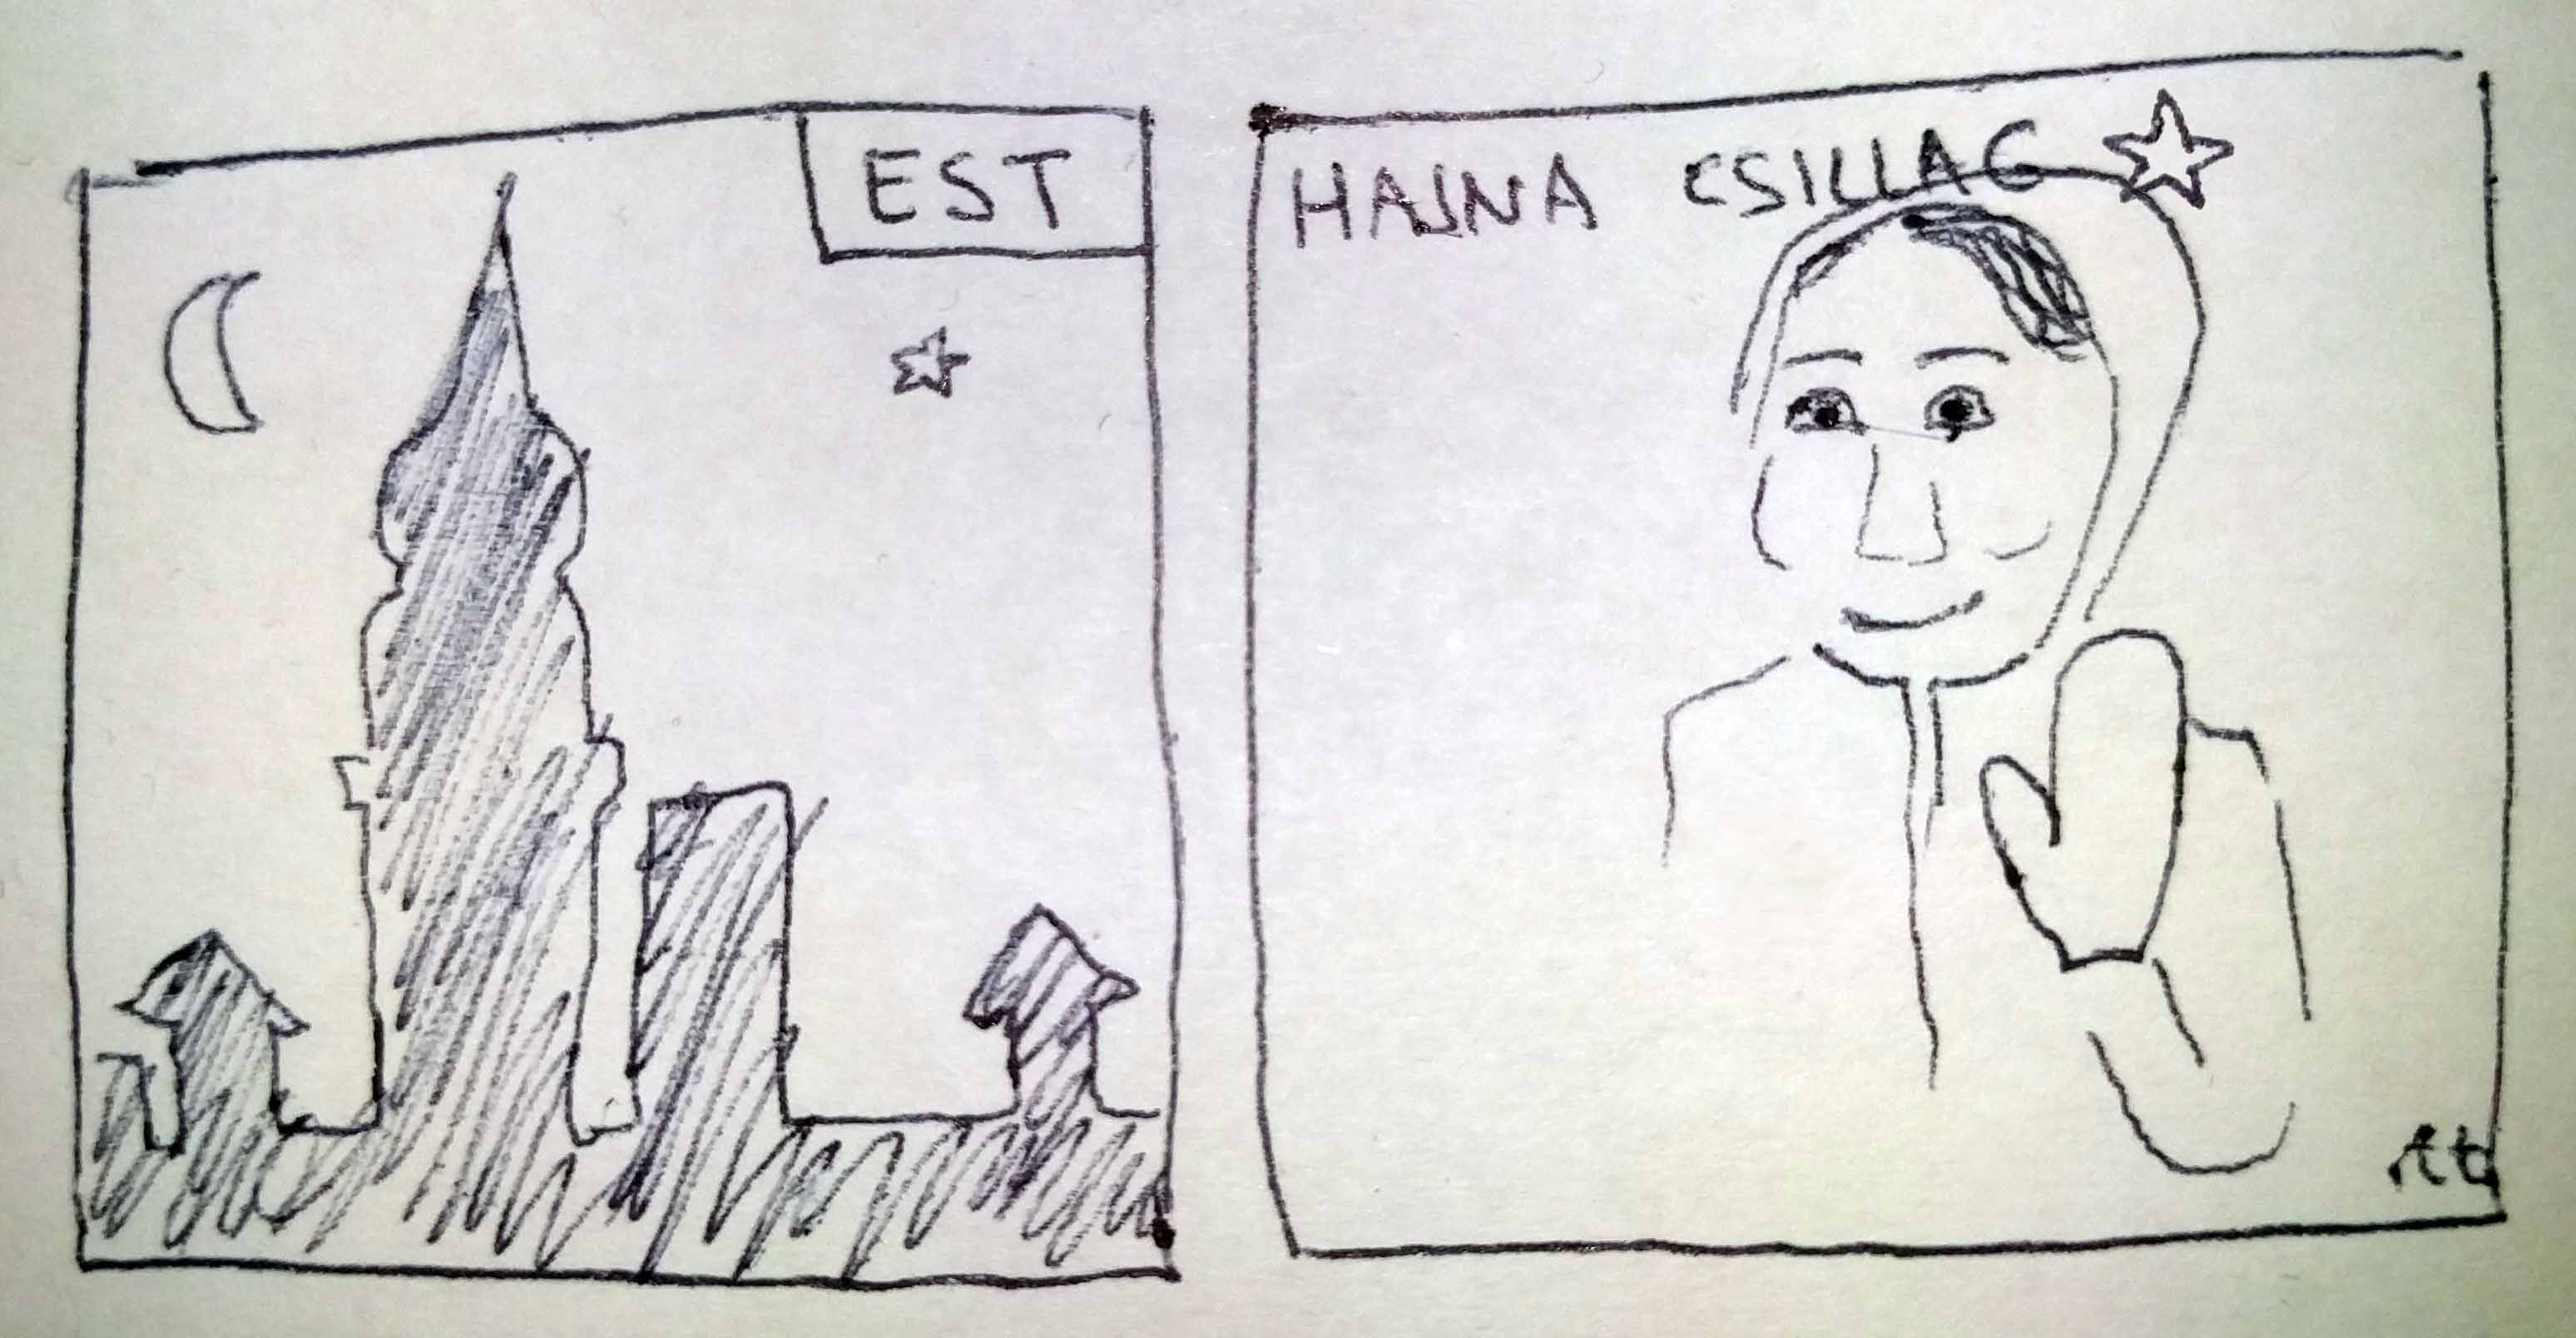 EST
HAJNA CSILLAG